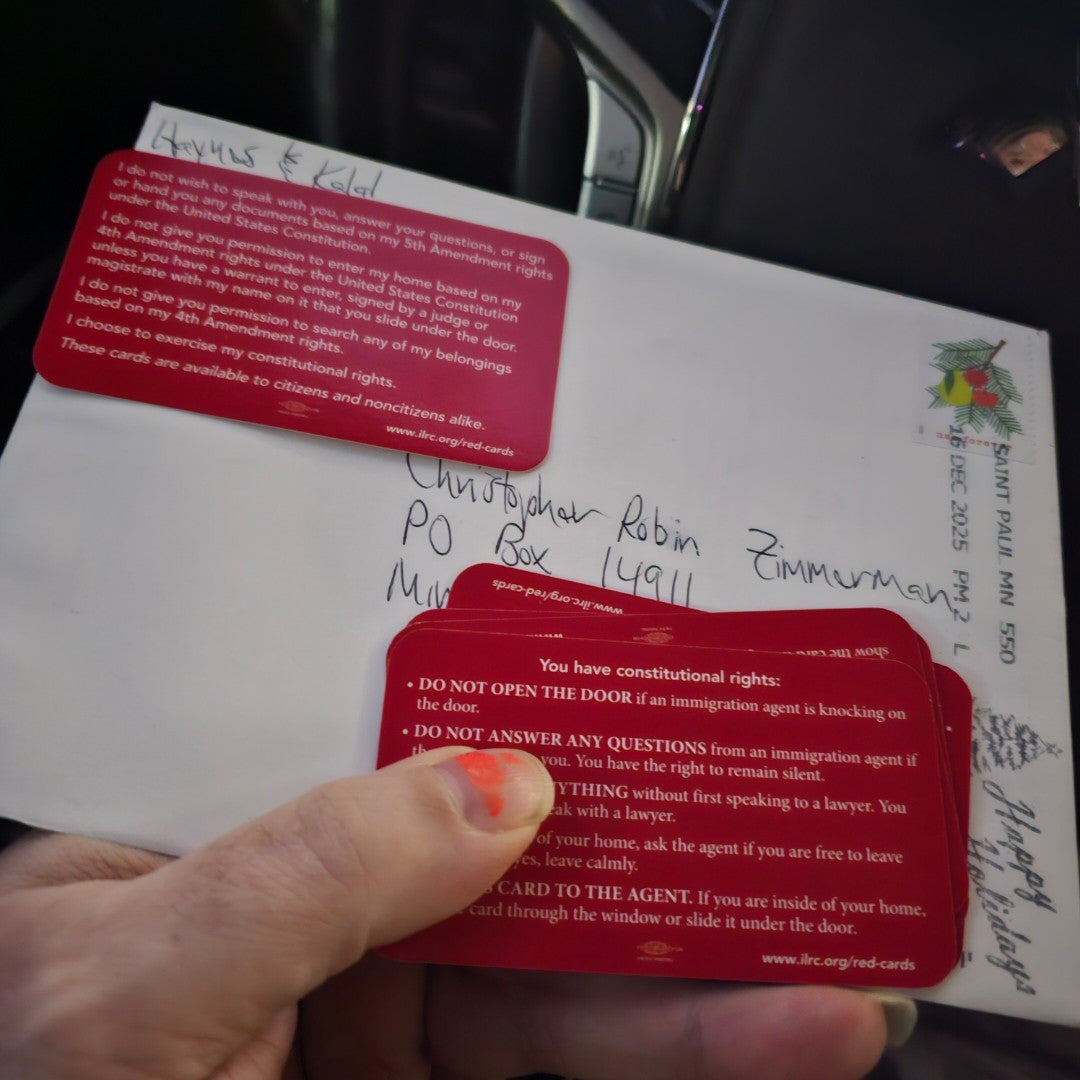 Haynes & Kalal
I do not wish to speak with you, answer your questions, or sign
or hand you any documents based on my 5th Amendment rights
under the United States Constitution.
I do not give you permission to enter my home based on my
4th Amendment rights under the United States Constitution
unless you have a warrant to enter, signed by a judge or
magistrate with my name on it that you slide under the door.
I do not give you permission to search any of my belongings
based on my 4th Amendment rights.
I choose to exercise my constitutional rights.
These cards are available to citizens and noncitizens alike.
www.ilrc.org/red-cards
SAINT PAUL MN 550
16 DEC 2025 PM 2 L
Christopher Robin Zimmerman
PO Box 14911
www.ilrc.org/red-cards
You have constitutional rights:
• DO NOT OPEN THE DOOR if an immigration agent is knocking on
the door.
• DO NOT ANSWER ANY QUESTIONS from an immigration agent if
you. You have the right to remain silent.
without first speaking to a lawyer. You
with a lawyer.
of your home, ask the agent if you are free to leave
yes, leave calmly.
CARD TO THE AGENT. If you are inside of your home,
card through the window or slide it under the door.
www.ilrc.org/red-cards
Happy
Holidays